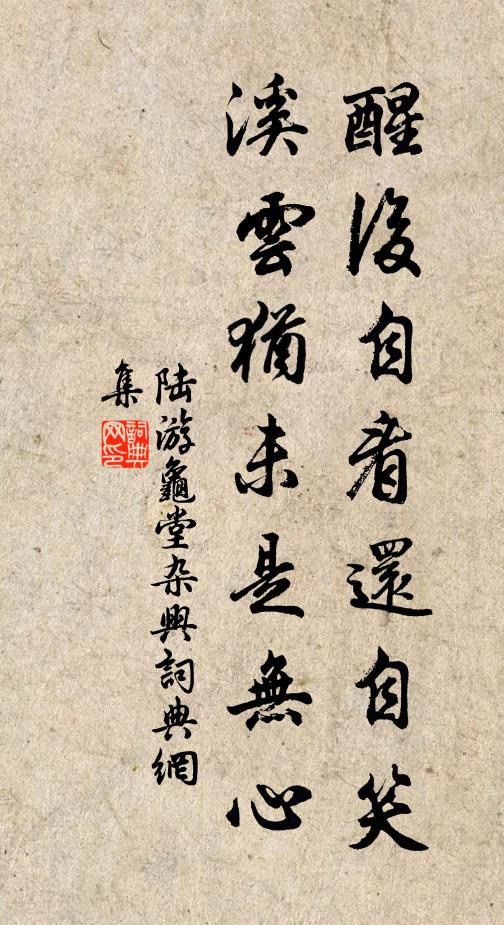 醒後自看還自笑
溪雲猶未是無心
陆游龜堂杂興詞典網
集
詞典
网印